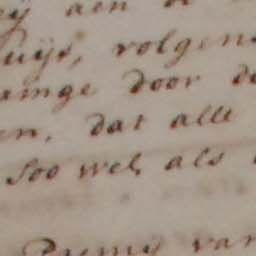 aen
uijs, volgens
ainge door de
en, dat alle
soo wel als
van